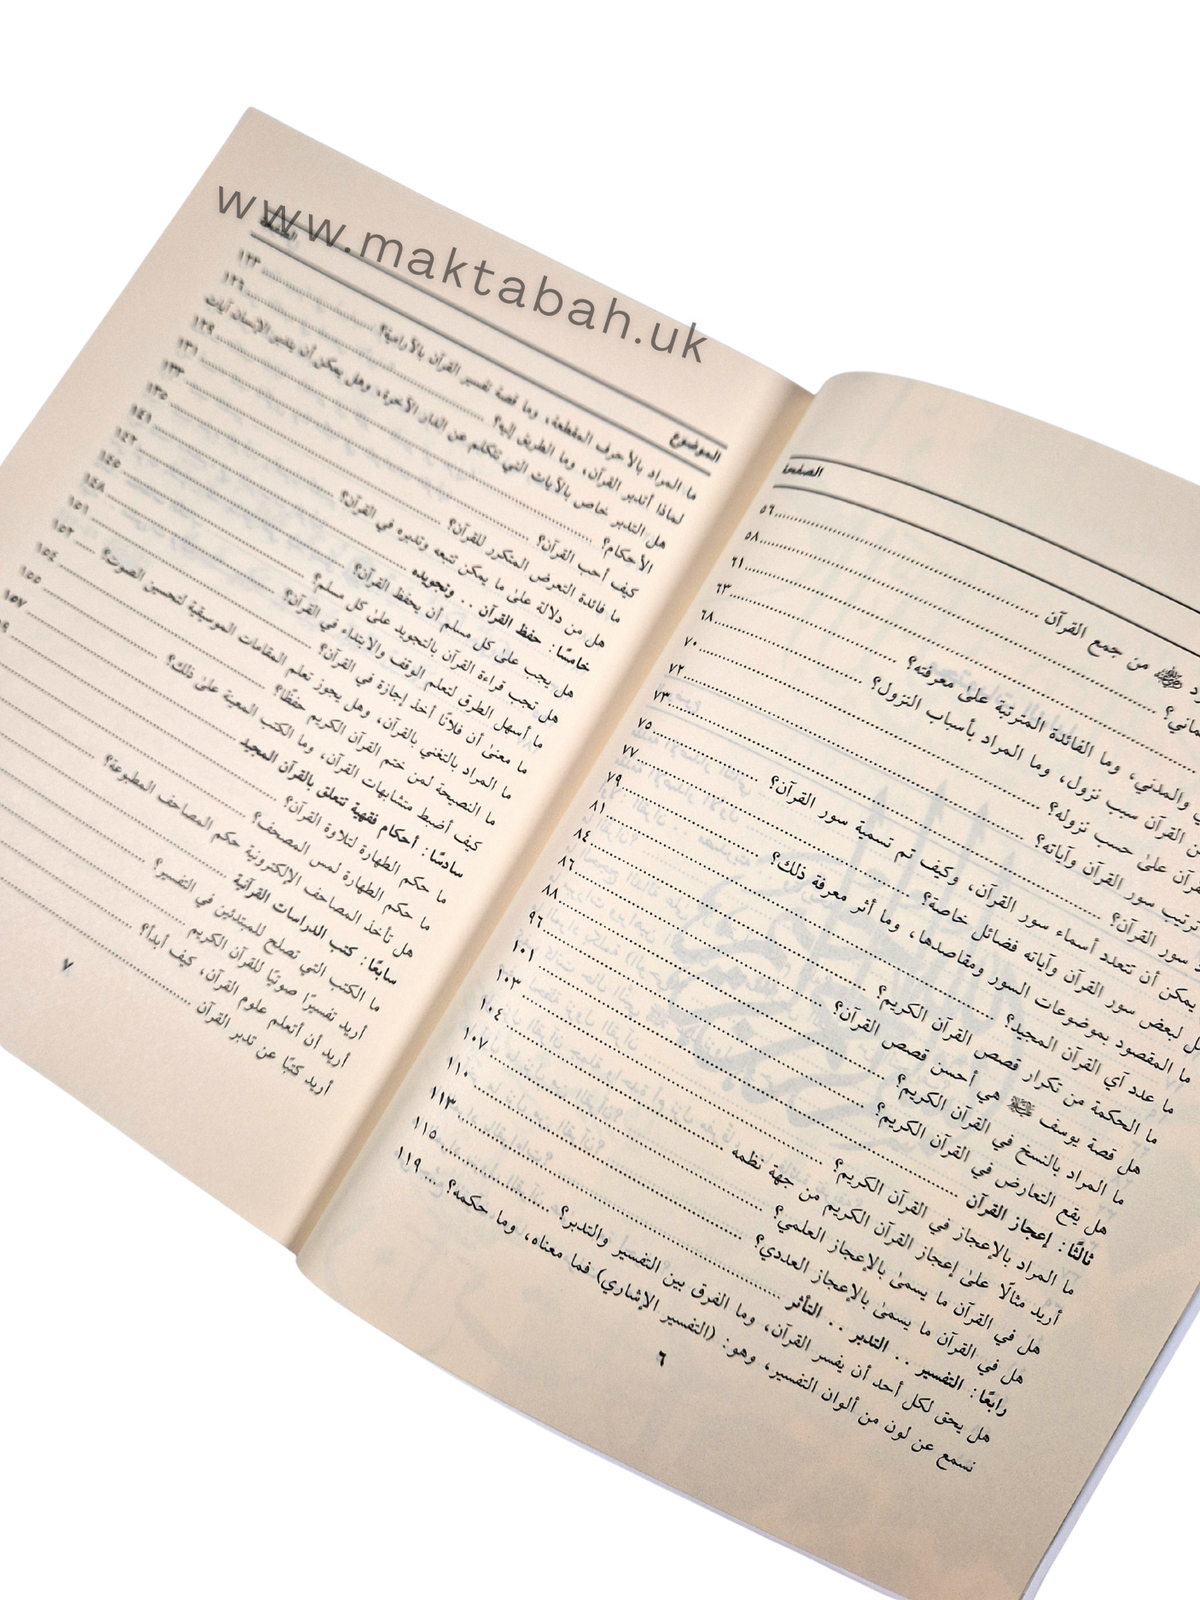 www.maktabah.uk
الصفحة
من جمع القرآن ... ٥٦
٥٨
والمدني، وما الفائدة المترتبة علىٰ معرفته؟ ... ٦١
القرآن سبب نزول، وما المراد بأسباب النزول؟ ... ٦٣
علىٰ حسب نزوله؟ ... ٦٨
ترتيب سور القرآن وآياته؟ ... ٧٠
سور القرآن؟ ... ٧٢
يمكن أن تتعدد أسماء سور القرآن، وكيف تم تسمية سور القرآن؟ ... ٧٣
لبعض سور القرآن وآياته فضائل خاصة؟ ... ٧٥
ما المقصود بموضوعات السور ومقاصدها، وما أثر معرفة ذلك؟ ... ٧٧
ما عدد آي القرآن المجيد؟ ... ٧٩
ما الحكمة من تكرار قصص القرآن الكريم؟ ... ٨١
هل قصة يوسف ﷺ هي أحسن قصص القرآن؟ ... ٨٤
ما المراد بالنسخ في القرآن الكريم؟ ... ٨٦
هل يقع التعارض في القرآن الكريم؟ ... ٨٨
ثالثًا: إعجاز القرآن ... ٩٦
ما المراد بالإعجاز في القرآن الكريم؟ ... ١٠١
أريد مثالًا علىٰ إعجاز القرآن الكريم من جهة نظمه ... ١٠٣
هل في القرآن ما يسمىٰ بالإعجاز العلمي؟ ... ١٠٤
هل في القرآن ما يسمىٰ بالإعجاز العددي؟ ... ١٠٧
رابعًا: التفسير .. التدبر .. التأثر ... ١١٠
هل يحق لكل أحد أن يفسر القرآن، وما الفرق بين التفسير والتدبر؟ ... ١١٣
نسمع عن لون من ألوان التفسير، وهو: (التفسير الإشاري) فما معناه، وما حكمه؟ ... ١١٥
١١٩
٦
الموضوع
ما المراد بالأحرف المقطعة، وما قصة تفسير القرآن بالآرامية؟ ... ١٢٣
لماذا أتدبر القرآن، وما الطريق إليه؟ ... ١٢٦
هل التدبر خاص بالآيات التي تتكلم عن الدار الآخرة، وهل يمكن أن يتدبر الإنسان آيات
الأحكام؟ ... ١٢٩
كيف أحب القرآن؟ ... ١٣١
ما فائدة التعرض المتكرر للقرآن؟ ... ١٣٣
هل من دلالة علىٰ ما يمكن تتبعه وتدبره في القرآن؟ ... ١٣٥
خامسًا: حفظ القرآن .. وتجويده ... ١٤١
هل يجب علىٰ كل مسلم أن يحفظ القرآن؟ ... ١٤٢
هل تجب قراءة القرآن بالتجويد علىٰ كل مسلم؟ ... ١٤٥
ما أسهل الطرق لتعلم الوقف والابتداء في القرآن؟ ... ١٤٨
ما معنىٰ أن فلانًا أخذ إجازة في القرآن؟ ... ١٥١
ما المراد بالتغني بالقرآن، وهل يجوز تعلم المقامات الموسيقية لتحسين الصوت؟ ... ١٥٢
ما النصيحة لمن ختم القرآن الكريم حفظًا؟ ... ١٥٤
كيف أضبط متشابهات القرآن، وما الكتب المعينة علىٰ ذلك؟ ... ١٥٥
سادسًا: أحكام فقهية تتعلق بالقرآن المجيد ... ١٥٧
ما حكم الطهارة لتلاوة القرآن؟
ما حكم الطهارة لمس المصحف؟
هل تأخذ المصاحف الإلكترونية حكم المصاحف المطبوعة؟
سابعًا: كتب الدراسات القرآنية
ما الكتب التي تصلح للمبتدئين في التفسير؟
أريد تفسيرًا صوتيًا للقرآن الكريم
أريد أن أتعلم علوم القرآن، كيف أبدأ؟
أريد كتبًا عن تدبر القرآن
٧